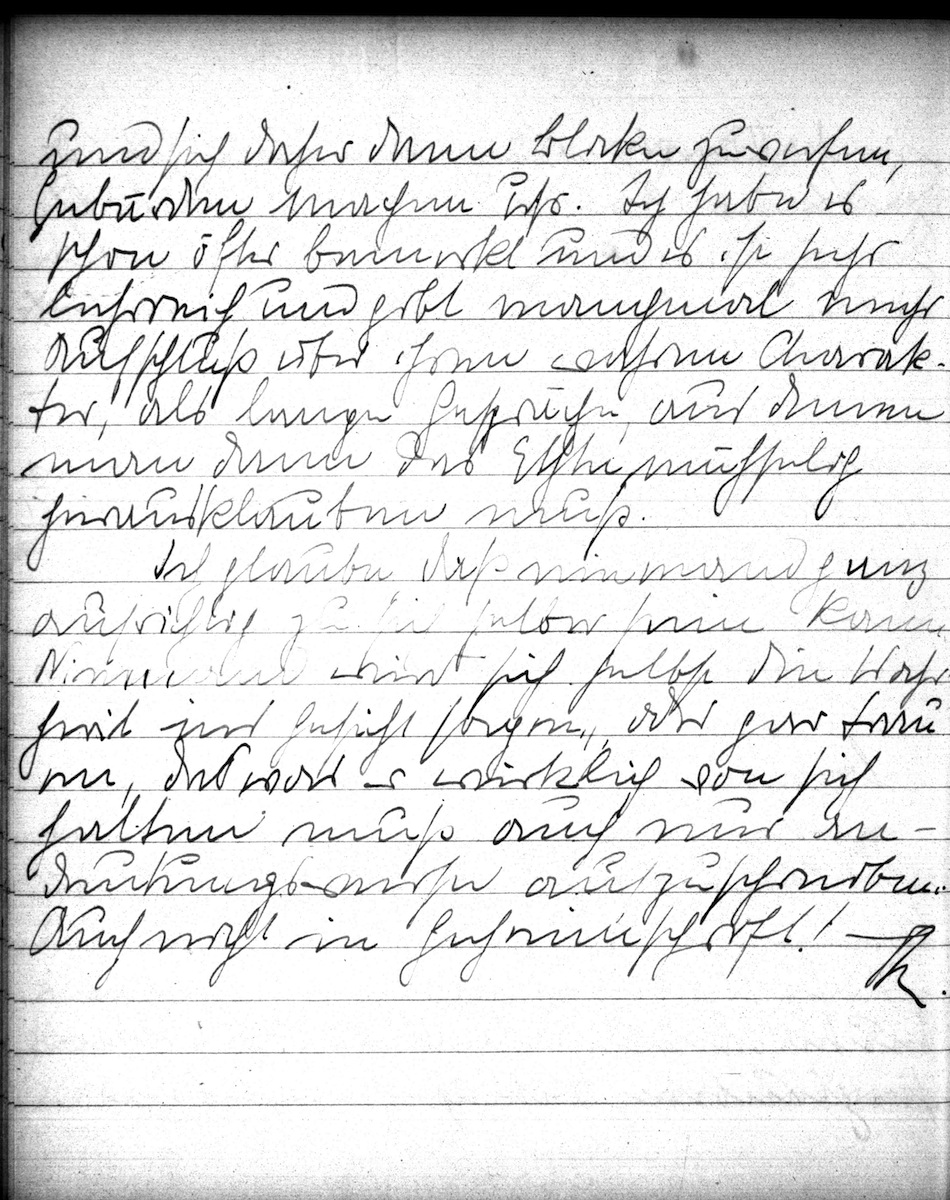 und sich daher dann Blicke zuwerfen,
Gebärden machen etc. Ich habe es
schon öfter bemerkt und es ist sehr
lehrreich und gibt manchmal mehr
Aufschluß über ihren wahren Charak-
ter, als lange Gespräche, aus denen
man dann das Echte mühselig
herausklauben muß.
Ich glaube daß niemand ganz
aufrichtig zu sich selber sein kann
Niemand wird sich selbst die Wahr
heit ins Gesicht sagen, oder gar trau
en, das was er wirklich von sich
halten muß auch nur an-
deutungsweise aufzuschreiben.
Auch nicht in Geheimschrift! –